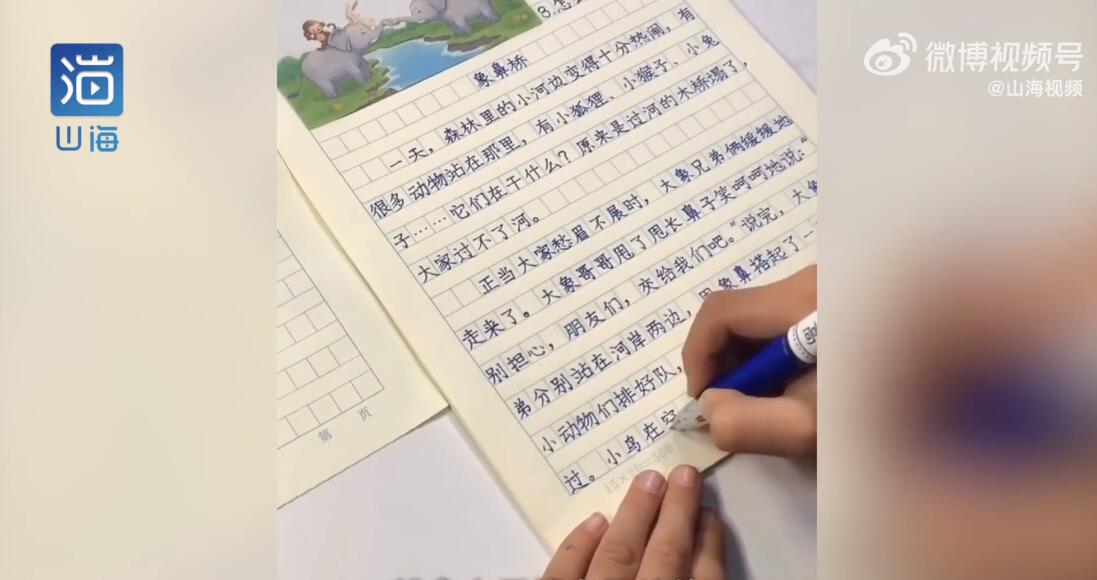 山海
微博视频号
@山海视频
3.怎
象鼻桥
一天，森林里的小河边变得十分热闹，有
很多动物站在那里，有小狐狸、小猴子、小兔
子……它们在干什么？原来是过河的木桥塌了，
大家过不了河。
正当大家愁眉不展时，大象兄弟俩缓缓地
走来了。大象哥哥甩了甩长鼻子笑呵呵地说：“
别担心，朋友们，交给我们吧。”说完，大象
弟分别站在河岸两边，用象鼻搭起了一
小动物们排好队，
过。小鸟在空
15×20=300
第 页